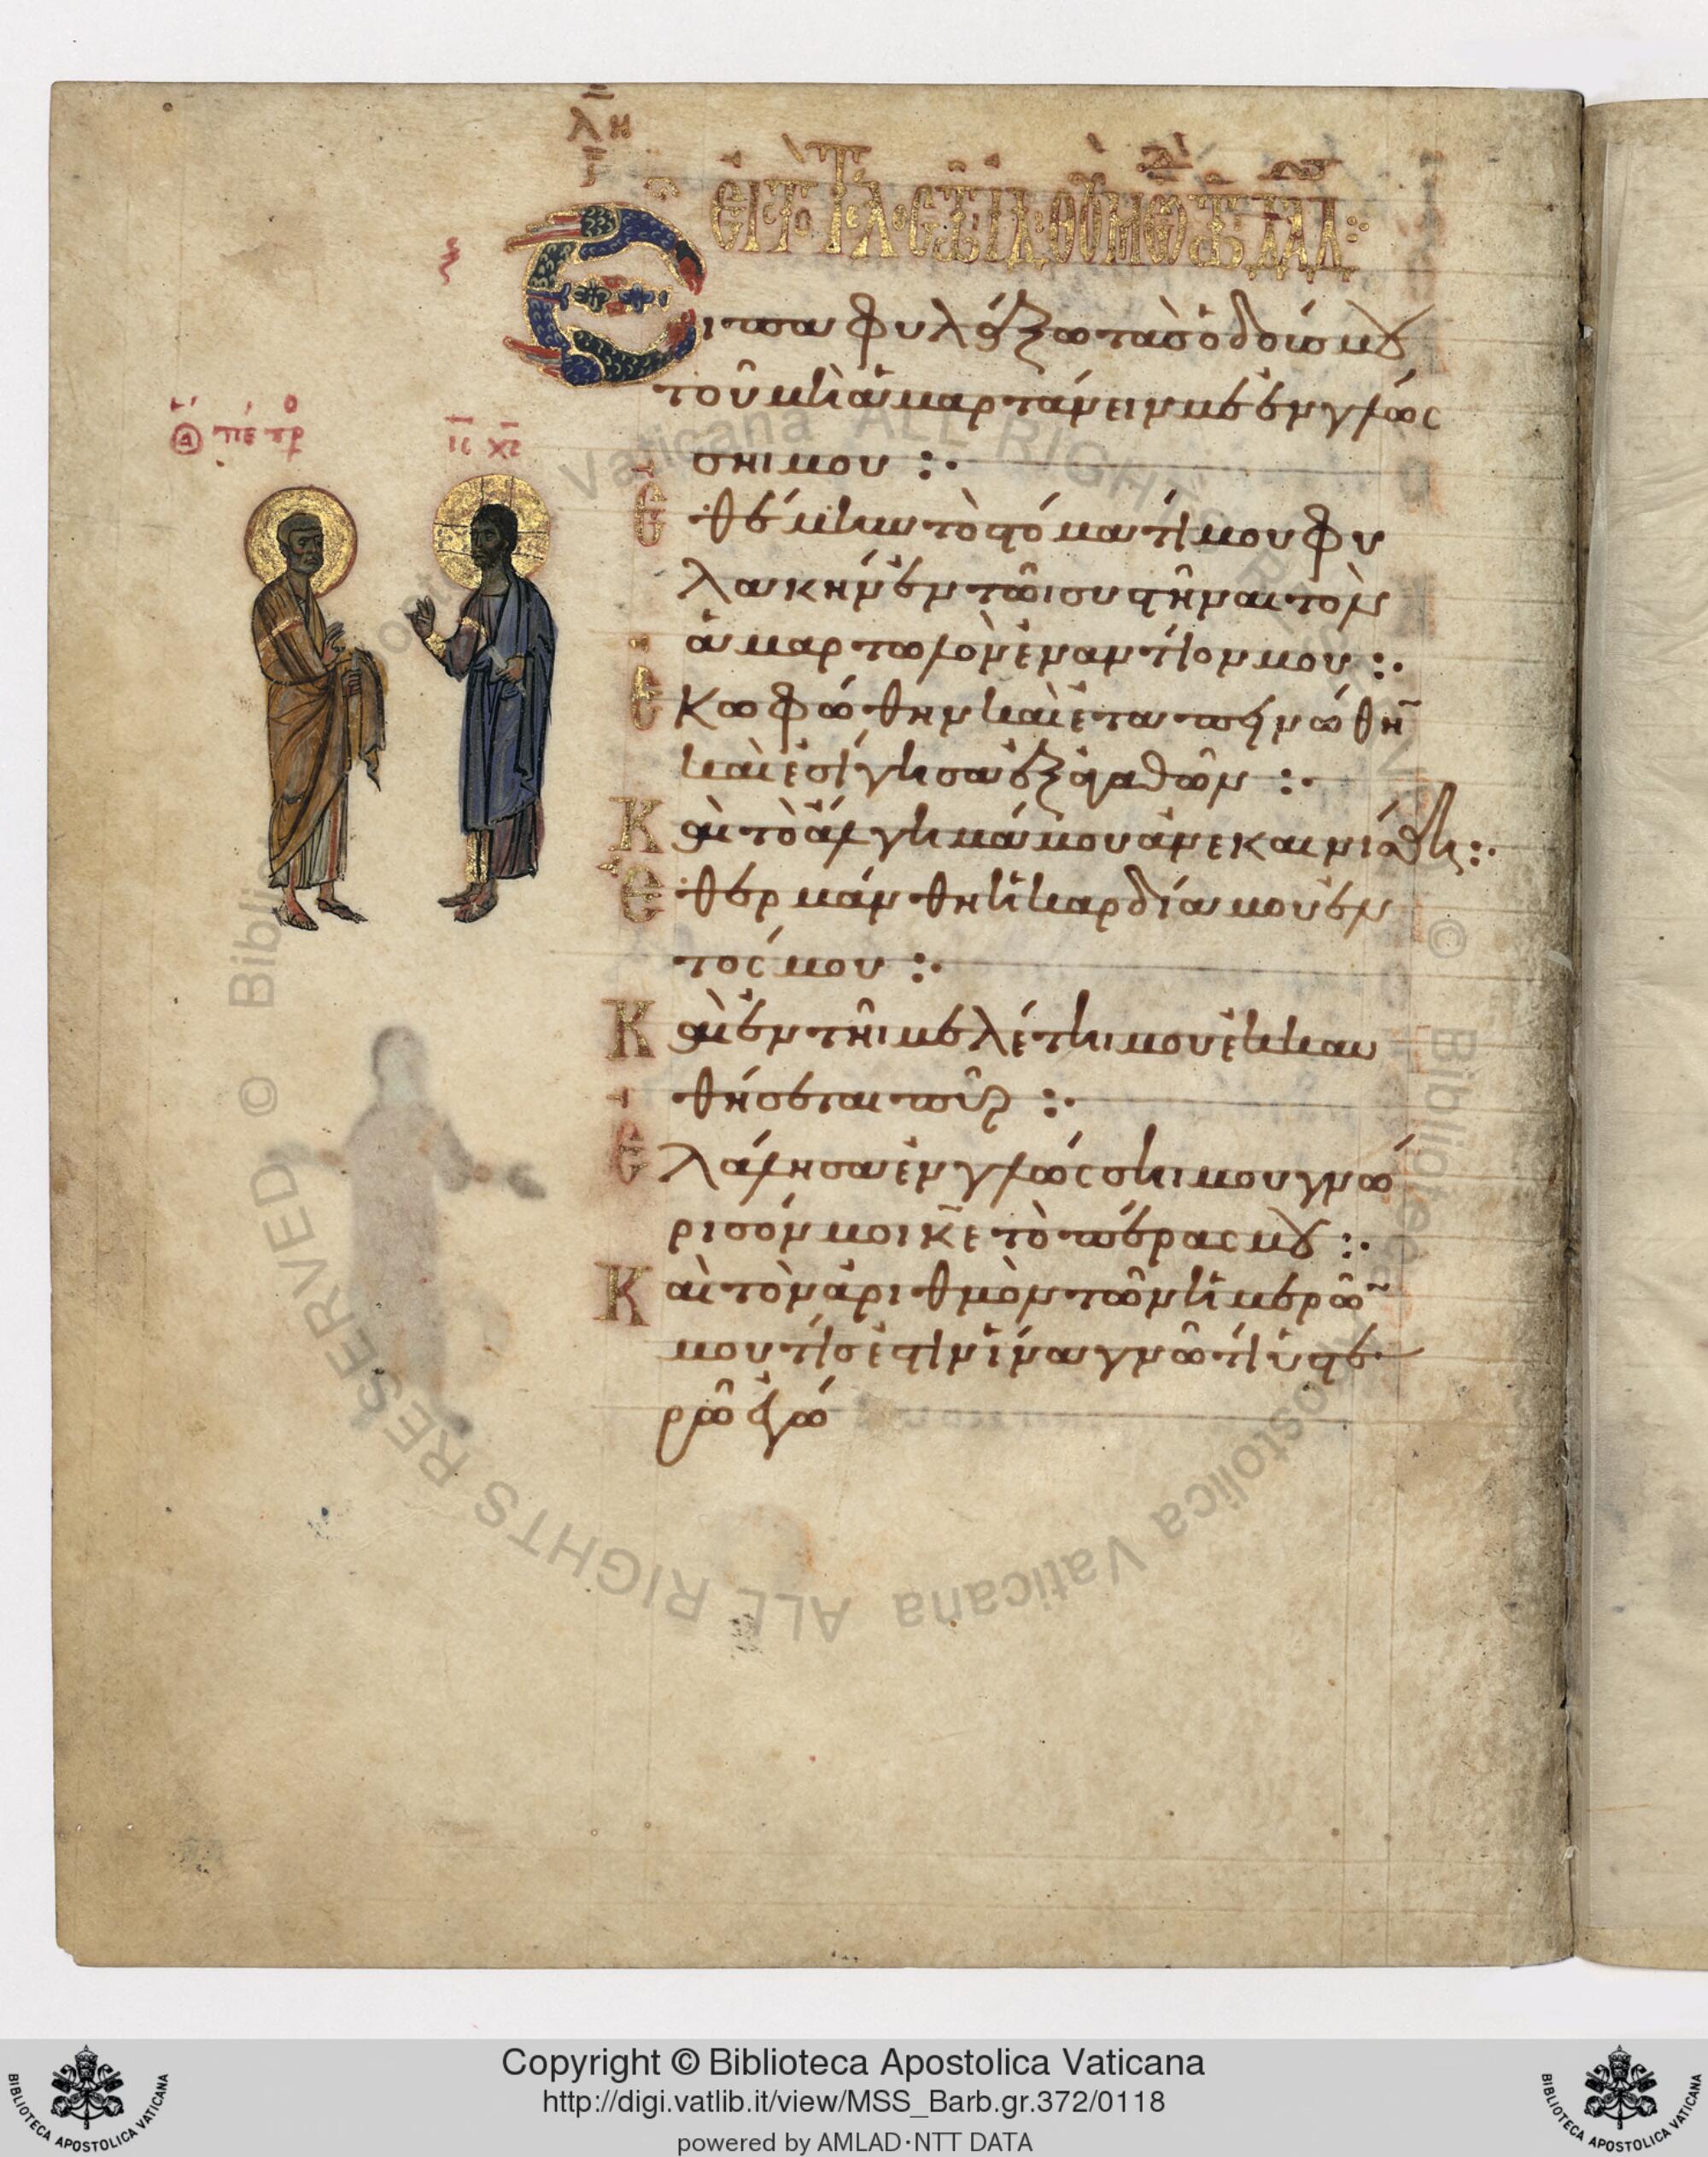 λη
Εἶπα φυλάξω τὰς ὁδούς μου
τοῦ μὴ ἁμαρτάνειν με ἐν γλώσ
σηι μου :·
Ἐθέμην τῶ στόματί μου φυ
λακὴν ἐν τῶι συστῆναι τὸν
ἁμαρτωλὸν ἐναντίον μου :·
Ἐκωφώθην καὶ ἐταπεινώθην
καὶ ἐσίγησα ἐξ ἀγαθῶν :·
Καὶ τὸ ἄλγημά μου ἀνεκαινίσθη :·
Ἐθερμάνθη ἡ καρδία μου ἐν
τός μου :·
Καὶ ἐν τῆι μελέτηι μου ἐκκαυ
θήσεται πῦρ :·
Ἐλάλησα ἐν γλώσσηι μου γνώ
ρισόν μοι κε τὸ πέρας μου :·
Καὶ τὸν ἀριθμὸν τῶν ἡμερῶν
μου τίς ἐστιν ἵνα γνῶ τί ὑστε
ρῶ ἐγώ
ις χς
Copyright © Biblioteca Apostolica Vaticana
http://digi.vatlib.it/view/MSS_Barb.gr.372/0118
powered by AMLAD·NTT DATA
BIBLIOTECA APOSTOLICA VATICANA
BIBLIOTECA APOSTOLICA VATICANA
© Biblioteca Apostolica Vaticana ALL RIGHTS RESERVED